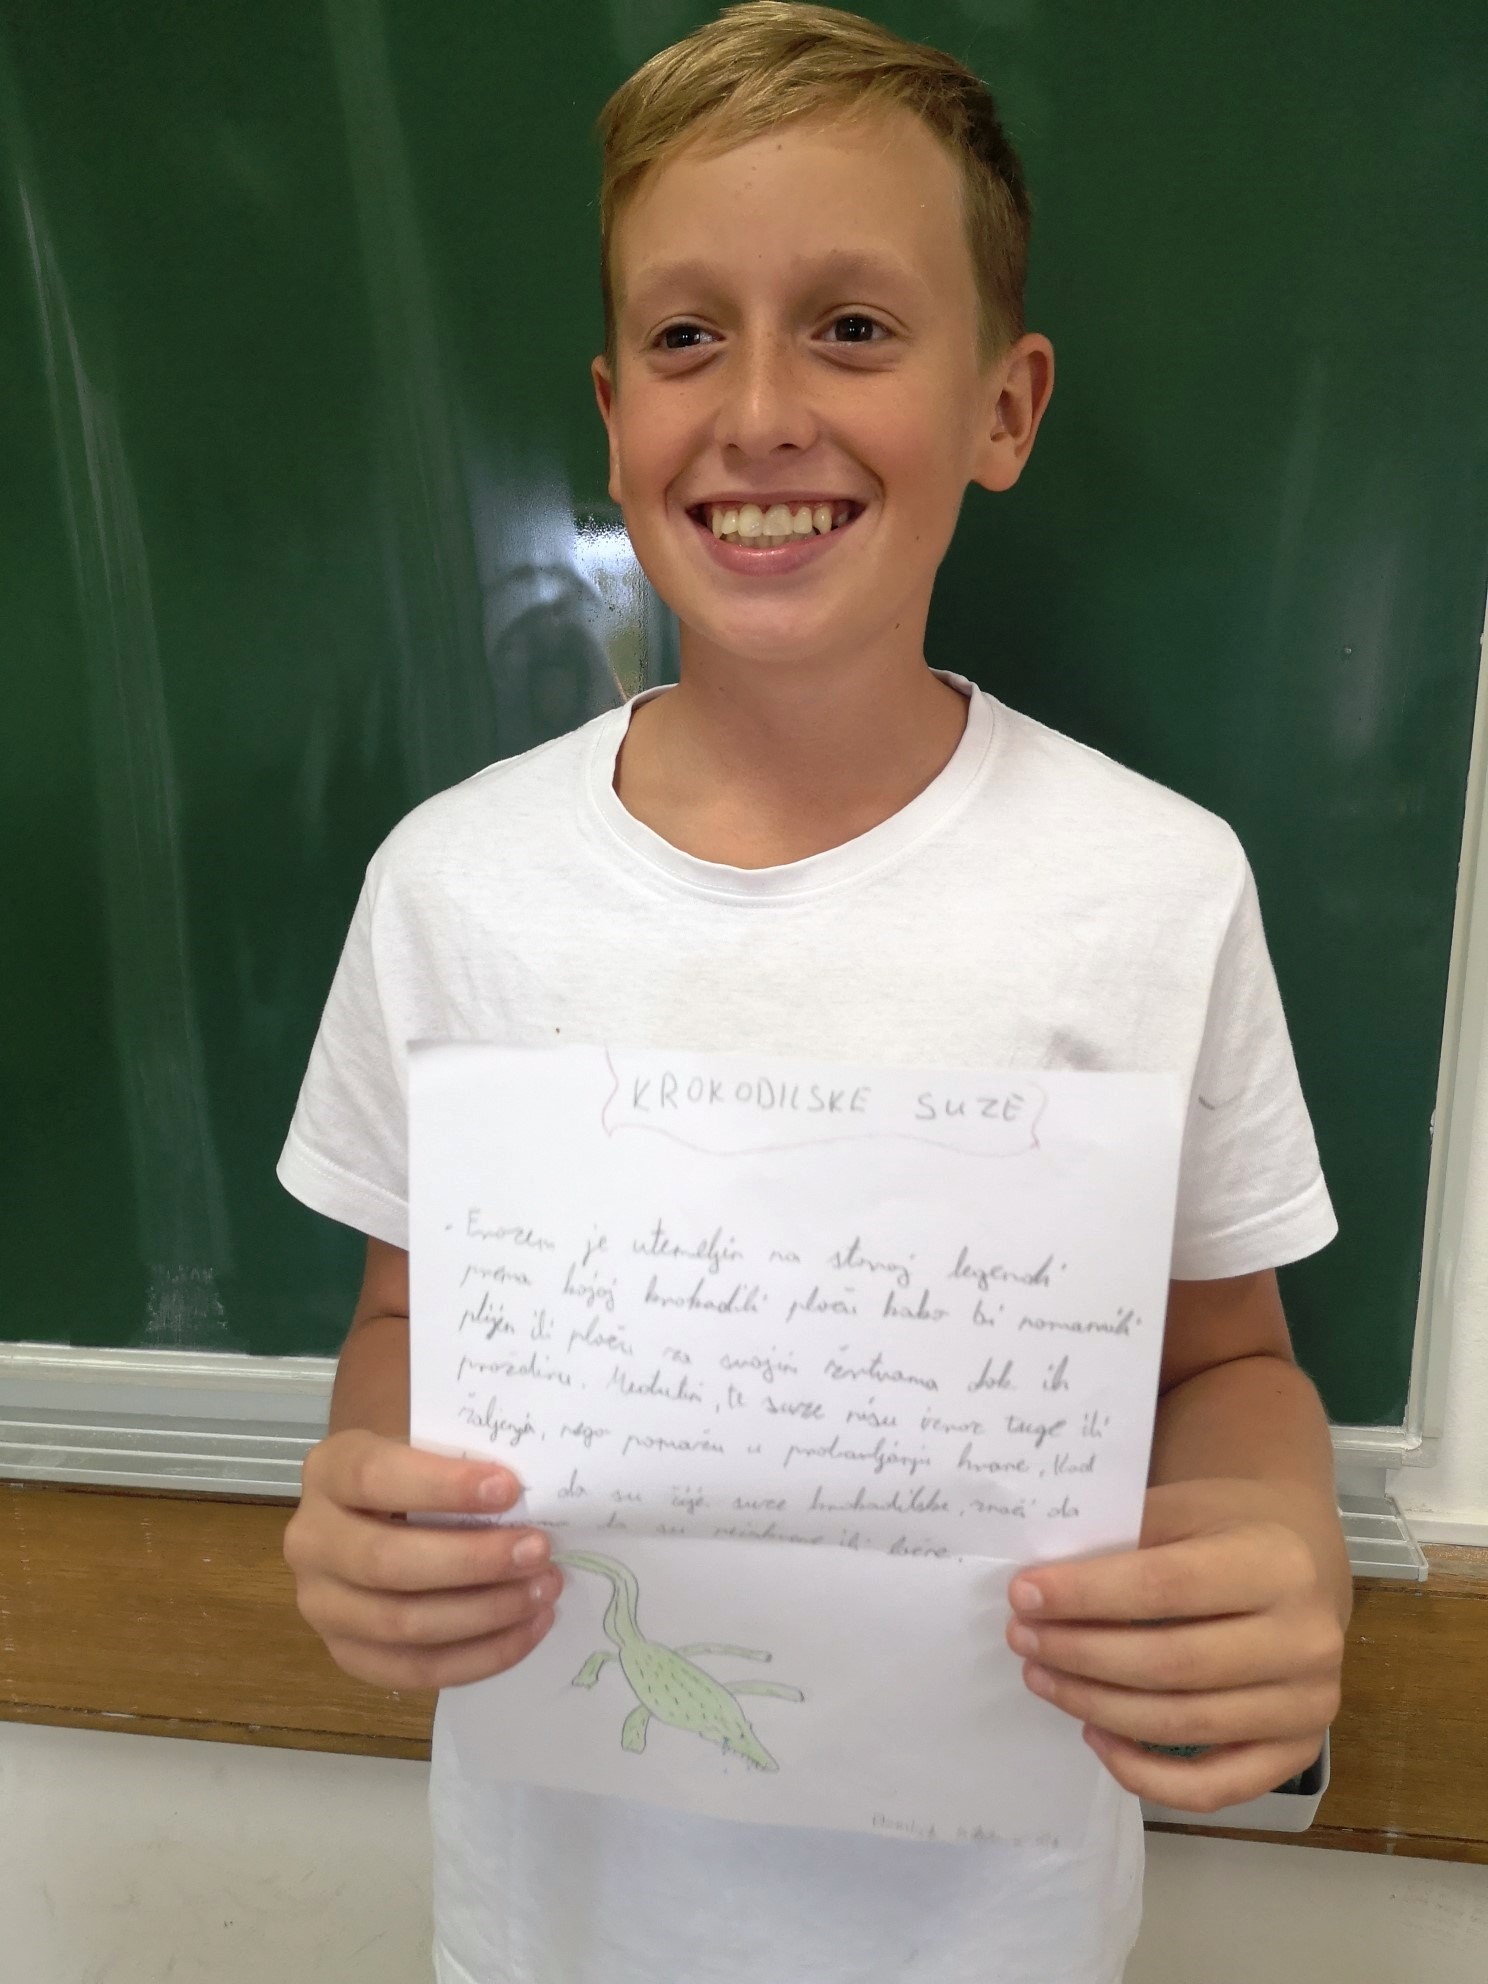 KROKODILSKE SUZE
- Frazem je utemeljen na staroj legendi
prema kojoj krokodili plaču kako bi namamili
plijen ili plaču za svojim žrtvama dok ih
proždiru. Međutim, te suze nisu izraz tuge ili
žaljenja, nego pomažu u probavljanju hrane. Kad
da su čije suze krokodilske, znači da
da su neiskrene ili lažne.